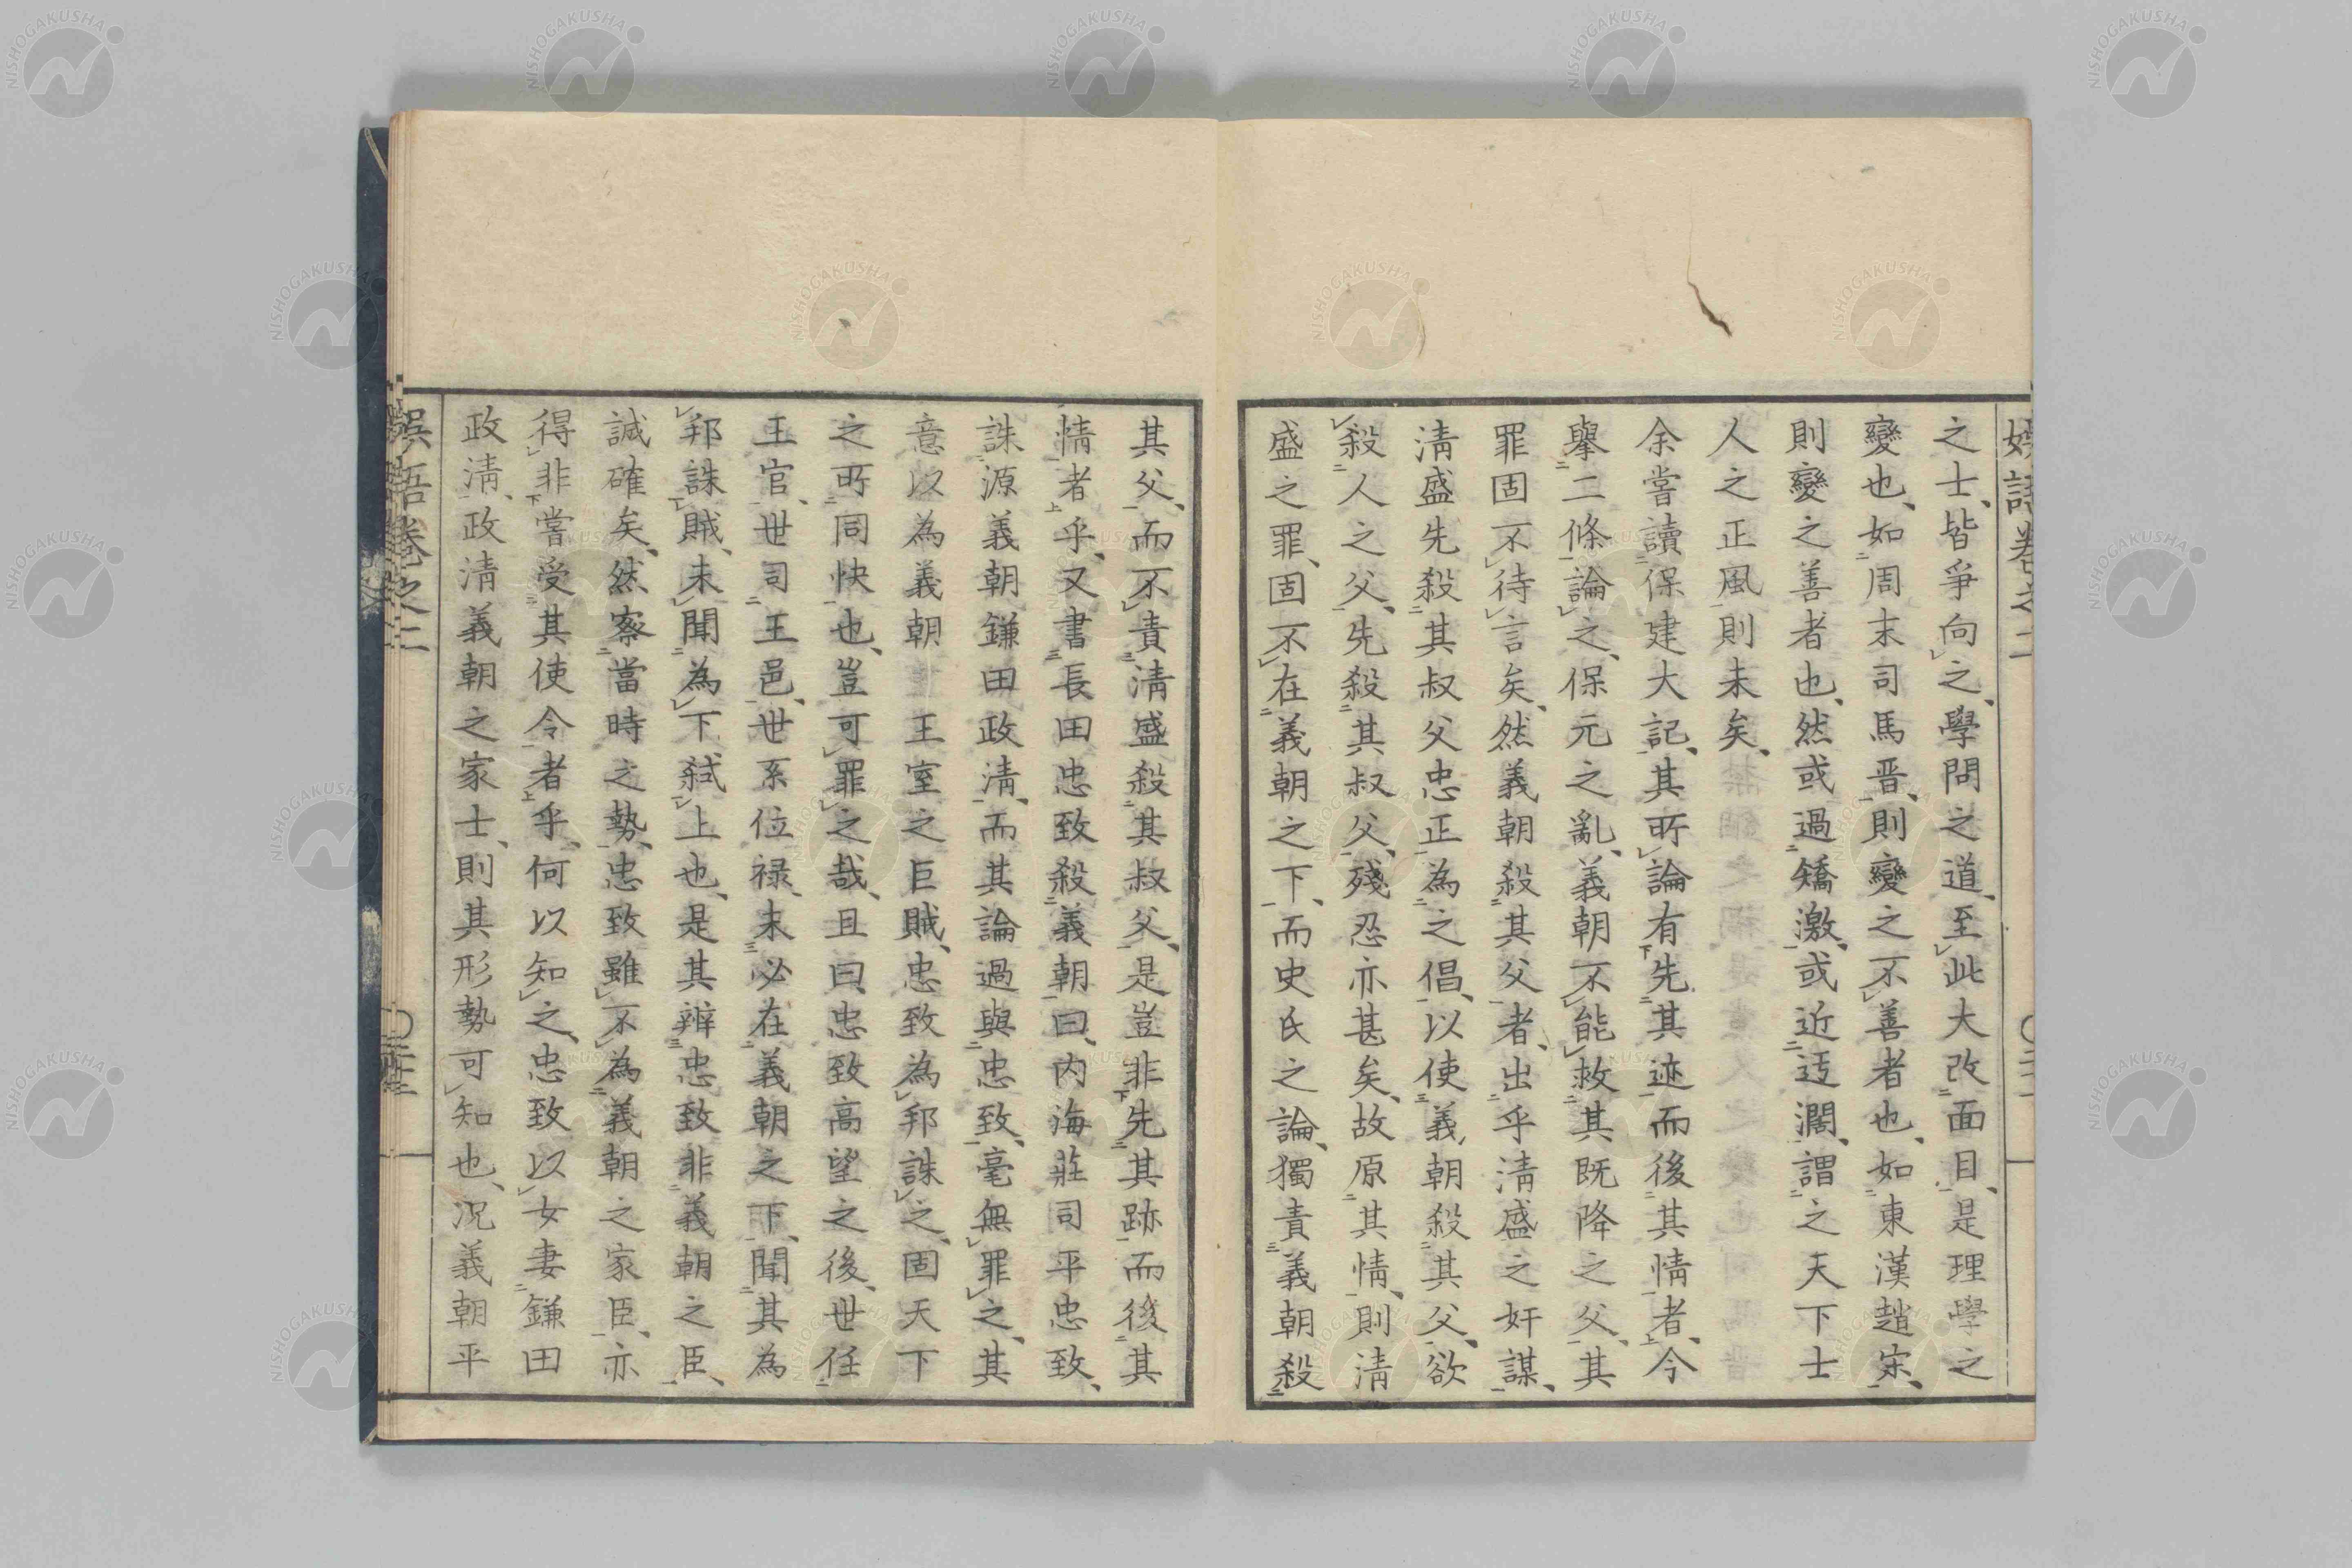 娯語卷之二
之士、皆爭向之、學問之道、至此大改面目、是理學之
變也、如周末司馬晋、則變之不善者也、如東漢趙宋、
則變之善者也、然或過矯激、或近迂濶、謂之天下士
人之正風則未矣、
余嘗讀保建大記、其所論有先其迹而後其情者、今
擧二條論之、保元之亂、義朝不能救其既降之父、其
罪固不待言矣、然義朝殺其父者、出乎淸盛之奸謀、
淸盛先殺其叔父忠正為之倡、以使義朝殺其父、欲
殺人之父、先殺其叔父、殘忍亦甚矣、故原其情、則淸
盛之罪、固不在義朝之下、而史氏之論、獨責義朝殺
其父、而不責淸盛殺其叔父、是豈非先其跡而後其
情者乎、又書長田忠致殺義朝曰、内海莊司平忠致、
誅源義朝鎌田政淸、而其論過與忠致、毫無罪之、其
意以為義朝王室之巨賊、忠致為邦誅之、固天下
之所同快也、豈可罪之哉、且曰、忠致高望之後、世任
王官、世司王邑、世系位禄、未必在義朝之下、聞其為
邦誅賊、未聞為下弑上也、是其辨忠致非義朝之臣、
誠確矣、然察當時之勢、忠致雖不為義朝之家臣、亦
得非嘗受其使令者乎、何以知之、忠致以女妻鎌田
政淸、政淸義朝之家士、則其形勢可知也、況義朝平
娯語卷之二